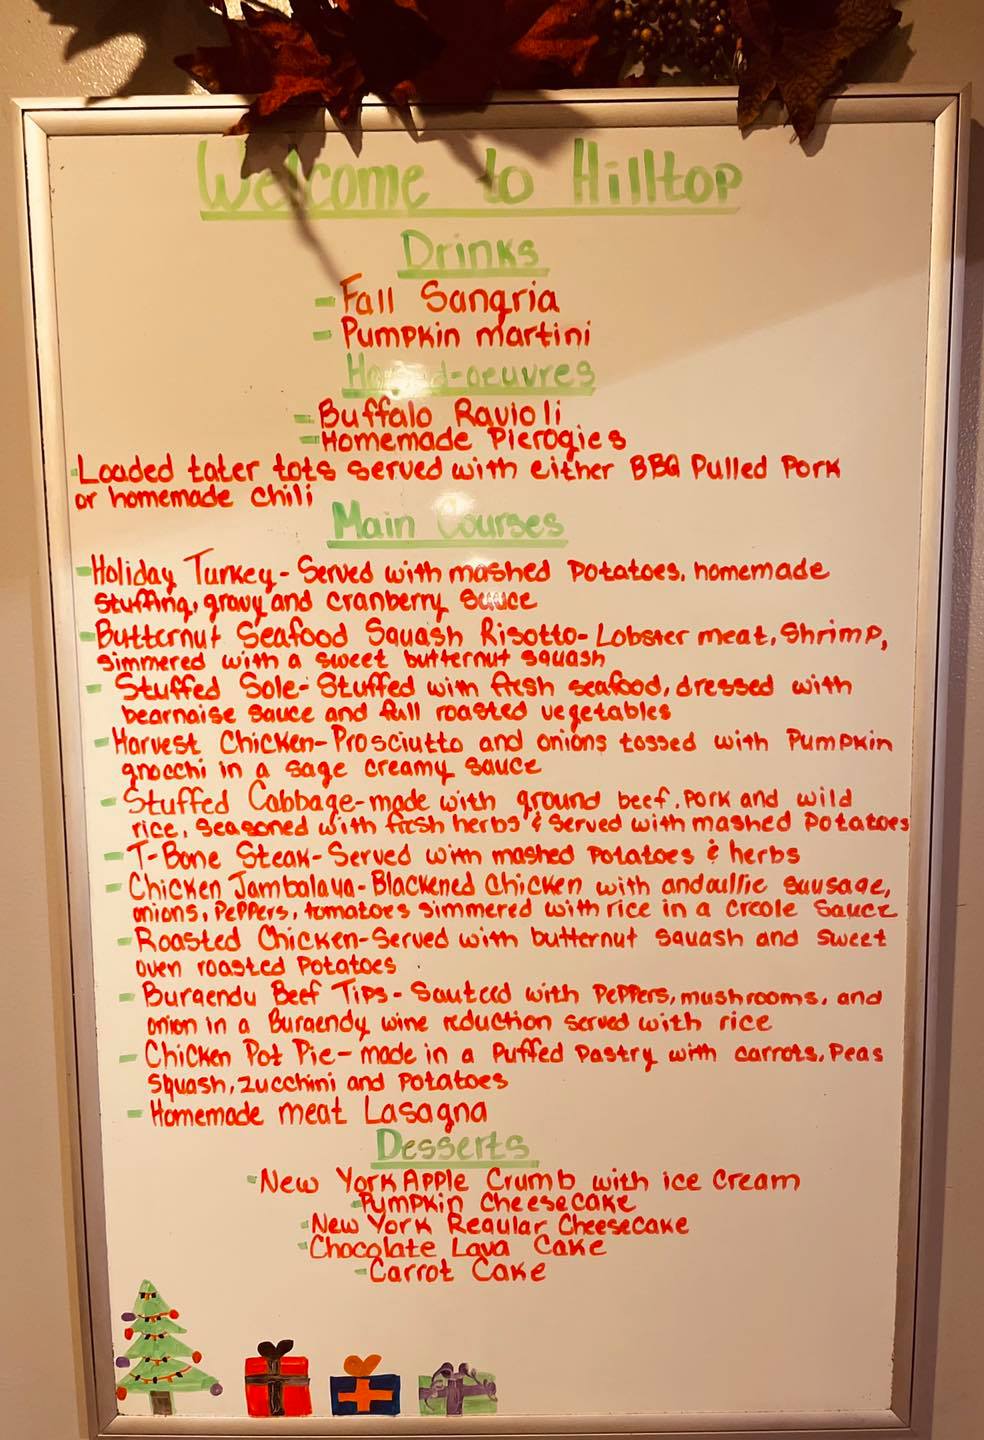 Welcome to Hilltop
Drinks
- Fall Sangria
- Pumpkin martini
Horsd-oeuvres
- Buffalo Ravioli
- Homemade Pierogies
- Loaded tater tots served with either BBQ Pulled Pork
or homemade chili
Main Courses
- Holiday Turkey - Served with mashed Potatoes, homemade
stuffing, gravy and cranberry sauce
- Butternut Seafood Squash Risotto - Lobster meat, Shrimp,
simmered with a sweet butternut squash
- Stuffed Sole - Stuffed with fresh seafood, dressed with
bearnaise sauce and full roasted vegetables
- Harvest Chicken - Prosciutto and onions tossed with Pumpkin
gnocchi in a sage creamy sauce
- Stuffed Cabbage - made with ground beef, pork and wild
rice, seasoned with fresh herbs & served with mashed Potatoes
- T-Bone Steak - Served with mashed Potatoes & herbs
- Chicken Jambalaya - Blackened Chicken with andoullie sausage,
onions, Peppers, tomatoes simmered with rice in a creole sauce
- Roasted Chicken - Served with butternut squash and sweet
oven roasted Potatoes
- Burgendy Beef Tips - Sauteed with Peppers, mushrooms, and
onion in a Burgendy wine reduction served with rice
- Chicken Pot Pie - made in a Puffed Pastry with carrots, Peas
Squash, zucchini and potatoes
- Homemade meat Lasagna
Desserts
- New York Apple Crumb with ice Cream
- Pumpkin Cheesecake
- New York Regular Cheesecake
- Chocolate Lava Cake
- Carrot Cake